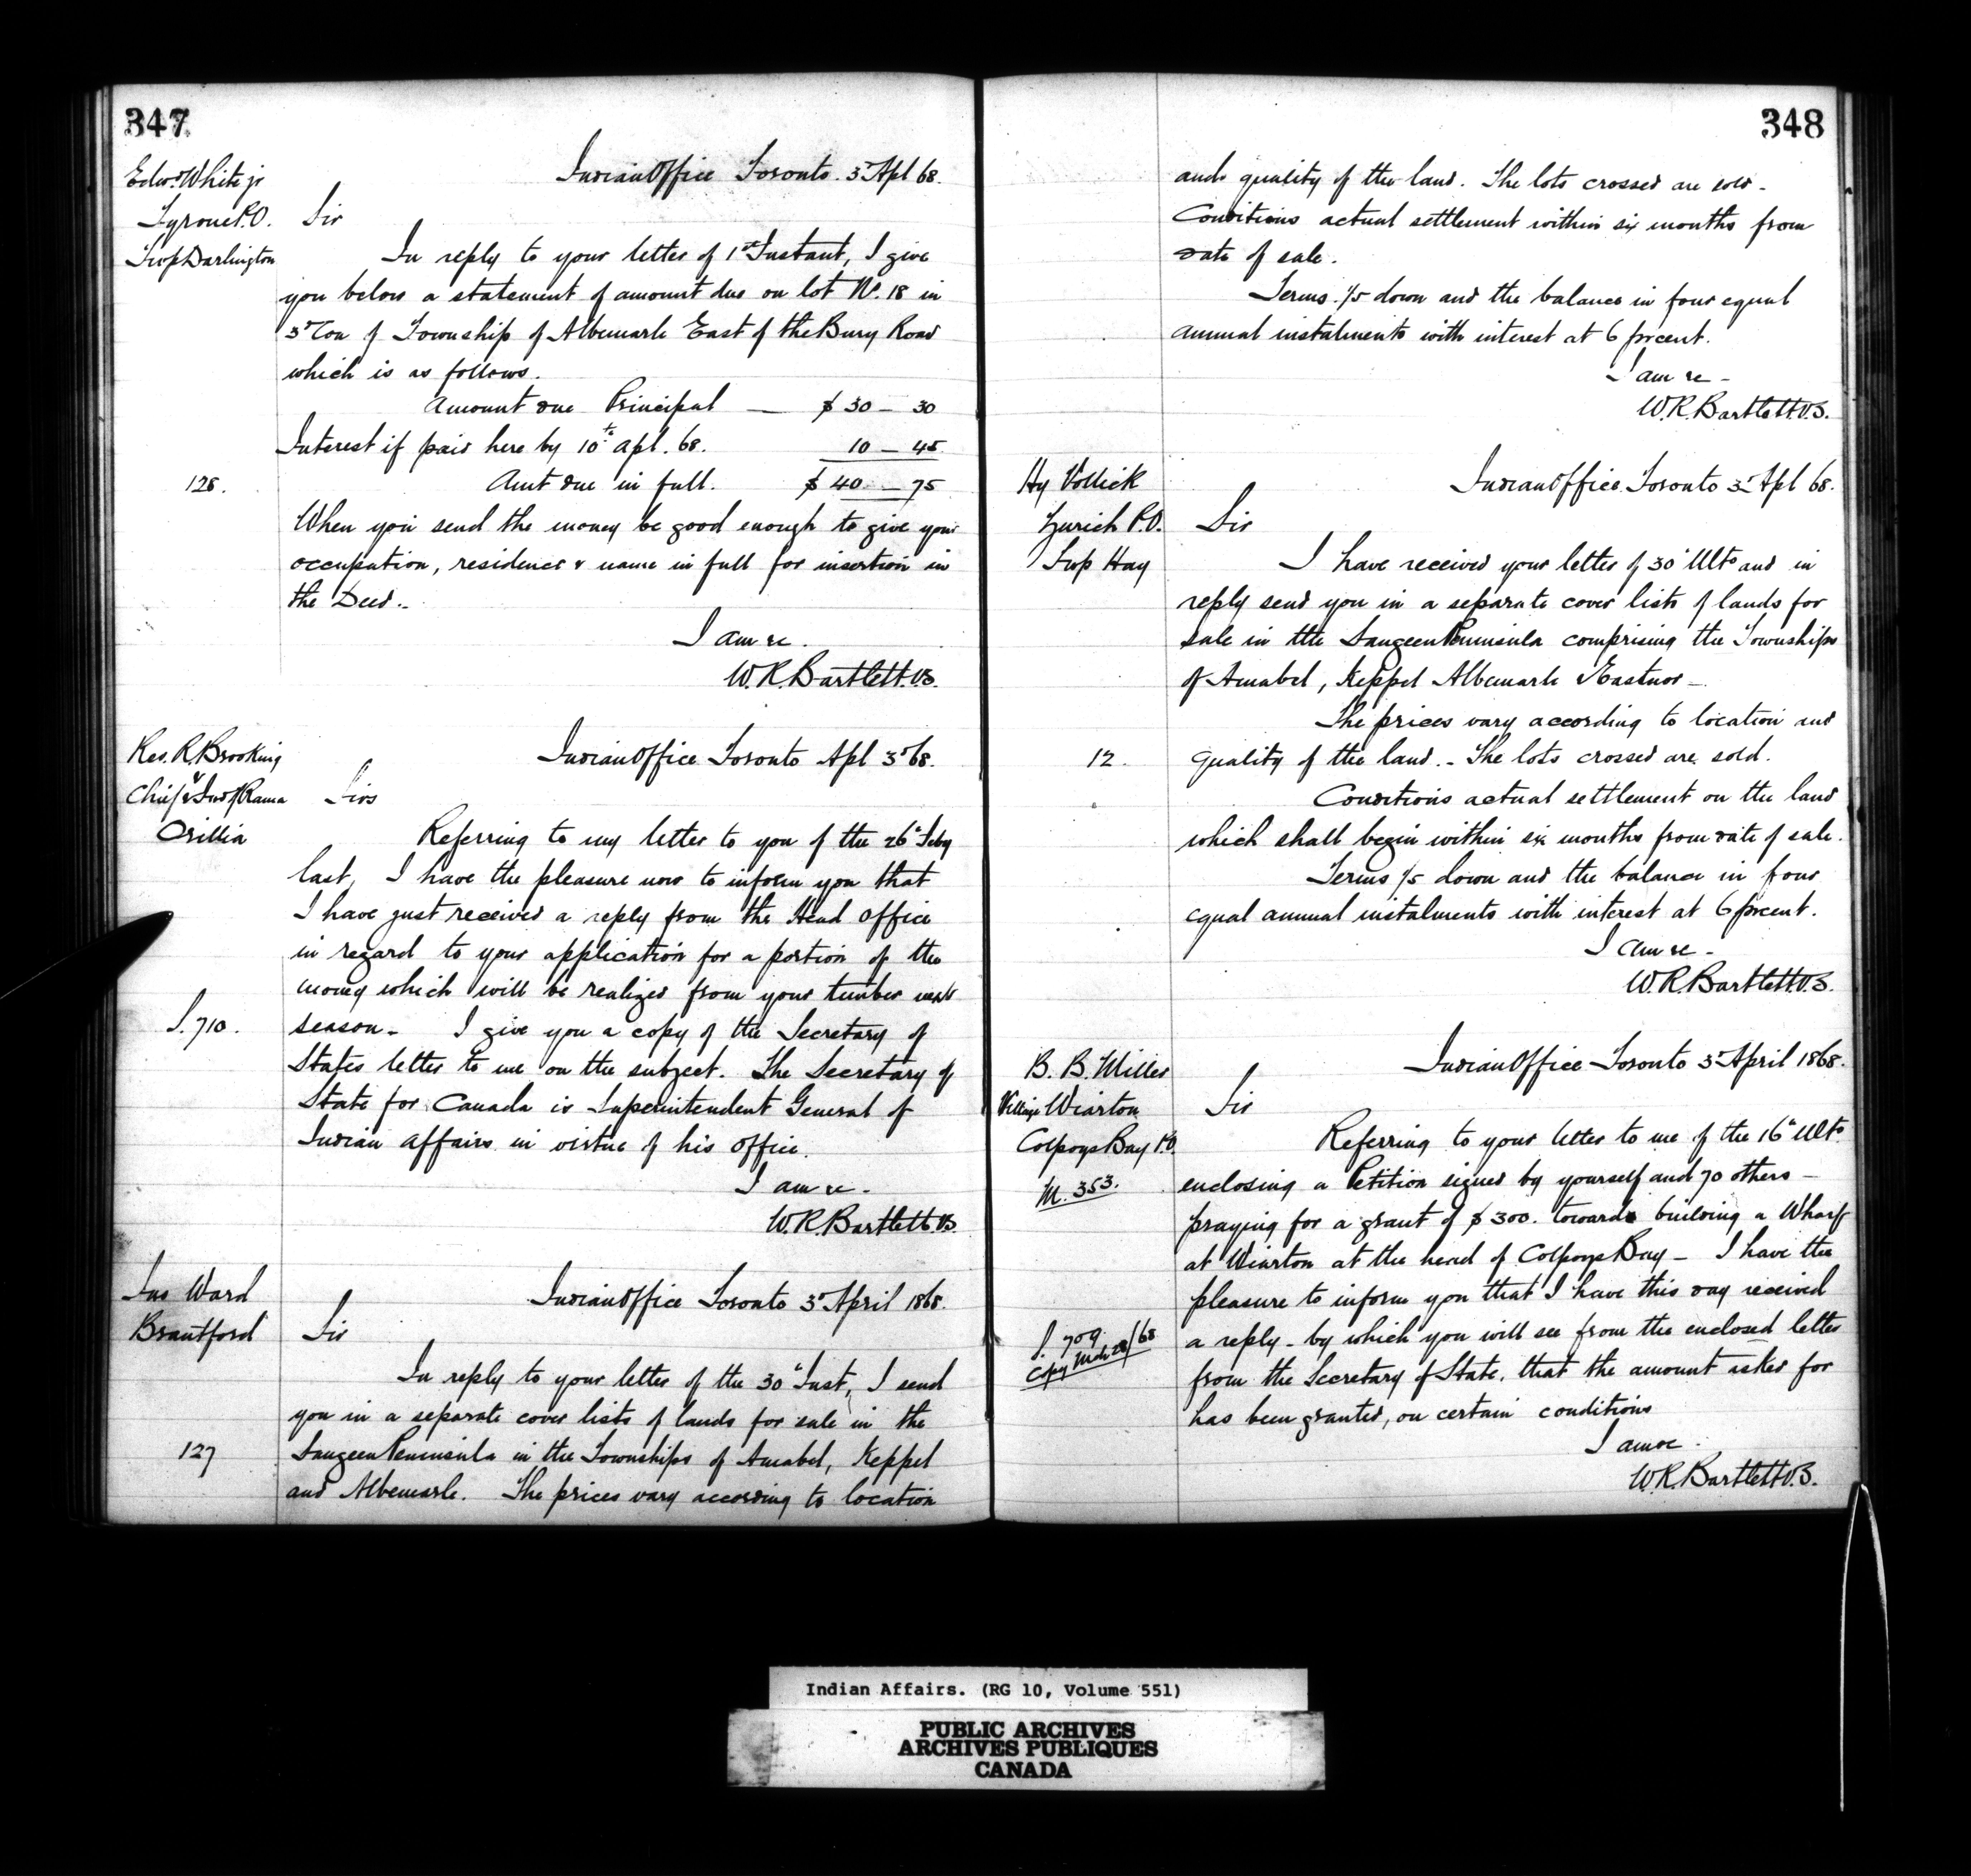 347
Edwd. White jr
Tyrone P.O.
Twp Darlington
Indian Office Toronto. 3d Apl 68.
Sir
In reply to your letter of 1st Instant, I give
you below a statement of amount due on lot No. 18 in
3d Con of Township of Albemarle East of the Bury Road
which is as follows.
Amount due Principal — $ 30 — 30
Interest if paid here by 10th Apl. 68. 10 — 45
128. Amt due in full. $ 40 — 75
When you send the money be good enough to give your
occupation, residence & name in full for insertion in
the Deed.-
I am &c.
W.R. Bartlett. V.S.
Rev. R Brooking
&
Chief & Ind of Rama
Orillia
Indian Office Toronto Apl 3d 68.
Sirs
Referring to my letter to you of the 26th Feby
last, I have the pleasure now to inform you that
I have just received a reply from the Head Office
in regard to your application for a portion of the
money which will be realized from your timber next
S. 710. season - I give you a copy of the Secretary of
States letter to me on the subject. The Secretary of
State for Canada is Superintendent General of
Indian Affairs in virtue of his office.
I am &c -
W.R. Bartlett. V.S.
Jas Ward
Brantford
Indian Office Toronto 3d April 1868.
Sir
In reply to your letter of the 30th Inst, I send
you in a separate cover lists of lands for sale in the
127 Saugeen Peninsula in the Townships of Amabel, Keppel
and Albemarle. The prices vary according to location
348
and quality of the land. The lots crossed are sold -
Conditions actual settlement within six months from
date of sale.
Terms. 1/5 down and the balance in four equal
annual instalments with interest at 6 prcent.
I am &c -
W.R. Bartlett V.S.
Hy Vollick
Zurich P.O.
Twp Hay
Indian Office Toronto 3d Apl 68.
Sir
I have received your letter of 30th Ulto and in
reply send you in a separate cover lists of lands for
sale in the Saugeen Peninsula comprising the Townships
of Amabel, Keppel Albemarle & Eastnor -
The prices vary according to location and
12. quality of the land. - The lots crossed are sold.
Conditions actual settlement on the land
which shall begin within six months from date of sale.
Terms 1/5 down and the balance in four
equal annual instalments with interest at 6 prcent.
I am &c -
W.R. Bartlett. V.S.
B. B. Miller
Village Wiarton
Colpoys Bay P.O.
M. 353.
Indian Office Toronto 3d April 1868.
Sir
Referring to your letter to me of the 16th Ulto
enclosing a Petition signed by yourself and 70 others -
praying for a grant of $ 300. towards building a Wharf
at Wiarton at the head of Colpoys Bay - I have the
pleasure to inform you that I have this day received
S. 709
Copy Mch 28/68
a reply - by which you will see from the enclosed letter
from the Secretary of State, that the amount asked for
has been granted, on certain conditions
I am &c.
W.R. Bartlett V.S.
Indian Affairs. (RG 10, Volume 551)
PUBLIC ARCHIVES
ARCHIVES PUBLIQUES
CANADA